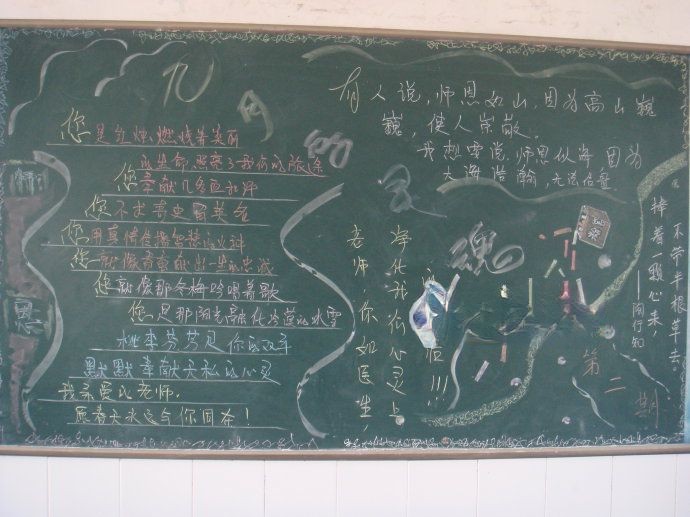 九月的灵魂
师
恩
您是红烛燃烧着美丽
的生命,照亮了我们的旅途
您奉献几多
您不求青史留英名
您用真情传播智慧的火种
您就像春蚕献出一生的忠诚
您就像那冬梅吟唱着歌
您是那阳光融化冷漠的冰雪
桃李芬芳是你的
默默奉献无私的心灵
我亲爱的老师,
愿春天永远与你同在!
有人说,师恩如山,因为高山巍
巍,使人崇敬。
我想要说,师恩似海,因为
大海浩瀚,无法估量
老师,你如医生,
净化我们心灵上
!!!
捧着一颗心来
不带半根草去
——陶行知
第二期